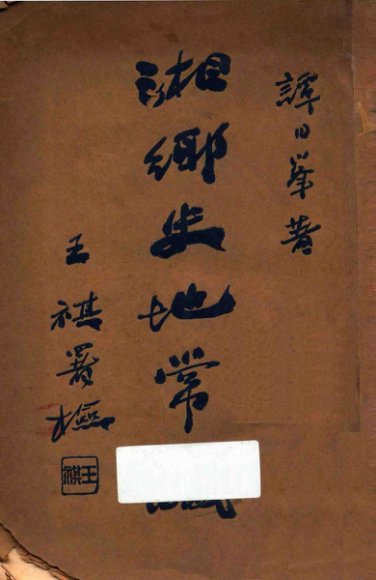 譚日峯著
湘鄉史地常
王祺署檢
王祺